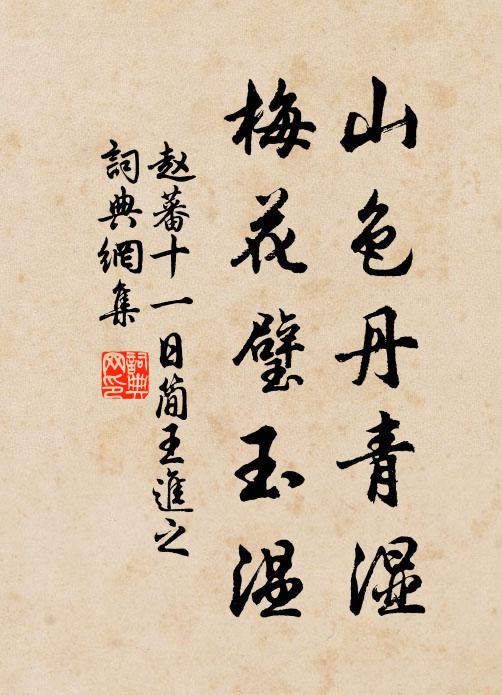 山色丹青湿
梅花璧玉温
赵蕃十一日简王進之
詞典網集
詞典网印